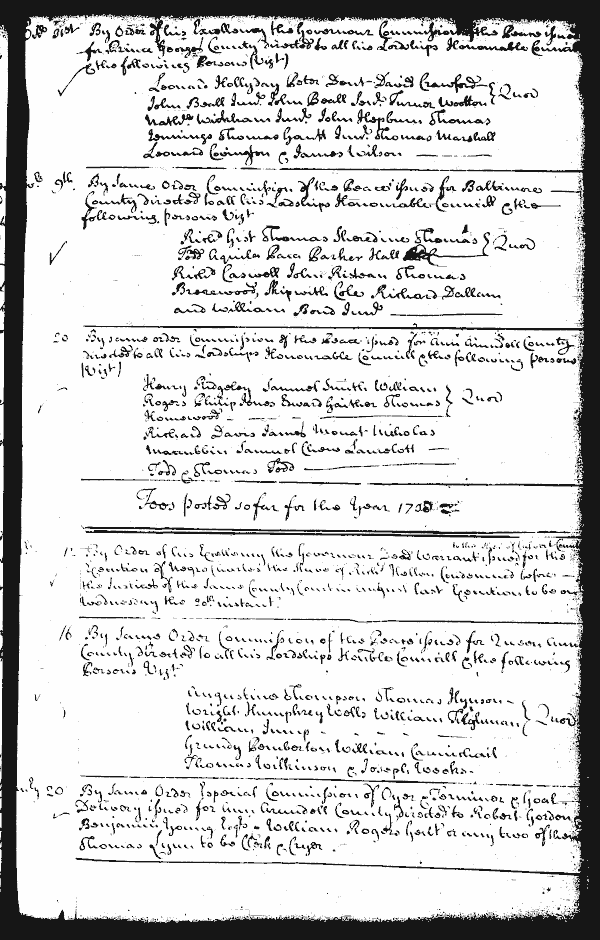 31st By Order of his Excellency the Governour Commission of the Peace issued
for Prince Georges County directed to all his Lordships Honourable Council
& the following Persons (Vizt)
Leonard Hollyday Peter Dent David Crawford
John Beall Junr. John Beall Senr. Turnor Wootton } Quor
Nathl. Wickham Junr. John Hepburn Thomas
Jennings Thomas Gantt Junr. Thomas Marshall
Leonard Covington & James Wilson
9th. By Same Order Commission of the Peace issued for Baltimore
County directed to all his Lordships Honourable Councill & the
following persons Vizt
Richd Gist Thomas Sheredine Thomas } Quor
Todd Aquila Paca Parker Hall
Richd Caswell John Risteau Thomas
Brerewood, Skipwith Cole Richard Dallam
and William Bond Junr
20 By same order Commission of the Peace issued for Ann Arundell County
directed to all his Lordships Honourable Councill & the following Persons
(Vizt)
Henry Ridgeley Samuel Smith William
Rogers Philip Jones Edward Gaither Thomas } Quor
Homewood
Richard Davis James Mouat Nicholas
Maccubbin Samuel Chew Lancelott
Todd & Thomas Todd
Fees posted so far for the Year
to the Sher. of Calvert County
By Order of his Excellency the Governour Dead Warrant issued for the
Execution of Negro Charles the Slave of Richd Hellon Condemned before
the Justices of the Same County Court in August last Execution to be on
Wednesday the 20th instant.
16 By Same Order Commission of the Peace issued for Queen Ann
County directed to all his Lordships Honble Councill & the following
Persons Vizt
Augustine Thompson Thomas Hynson
Wright Humphrey Wells William Tilghman } Quor
William Jump
Grundy Pemberton William Carmichail
Thomas Wilkinson & Joseph Weeks.
20 By Same Order Especial Commission of Oyer & Terminer & Goal
Delivery issued for Ann Arundell County directed to Robert Gordon
Benjamin Young Esqrs & William Rogers Gent or any two of them
Thomas Lynn to be Clerk & Cryer